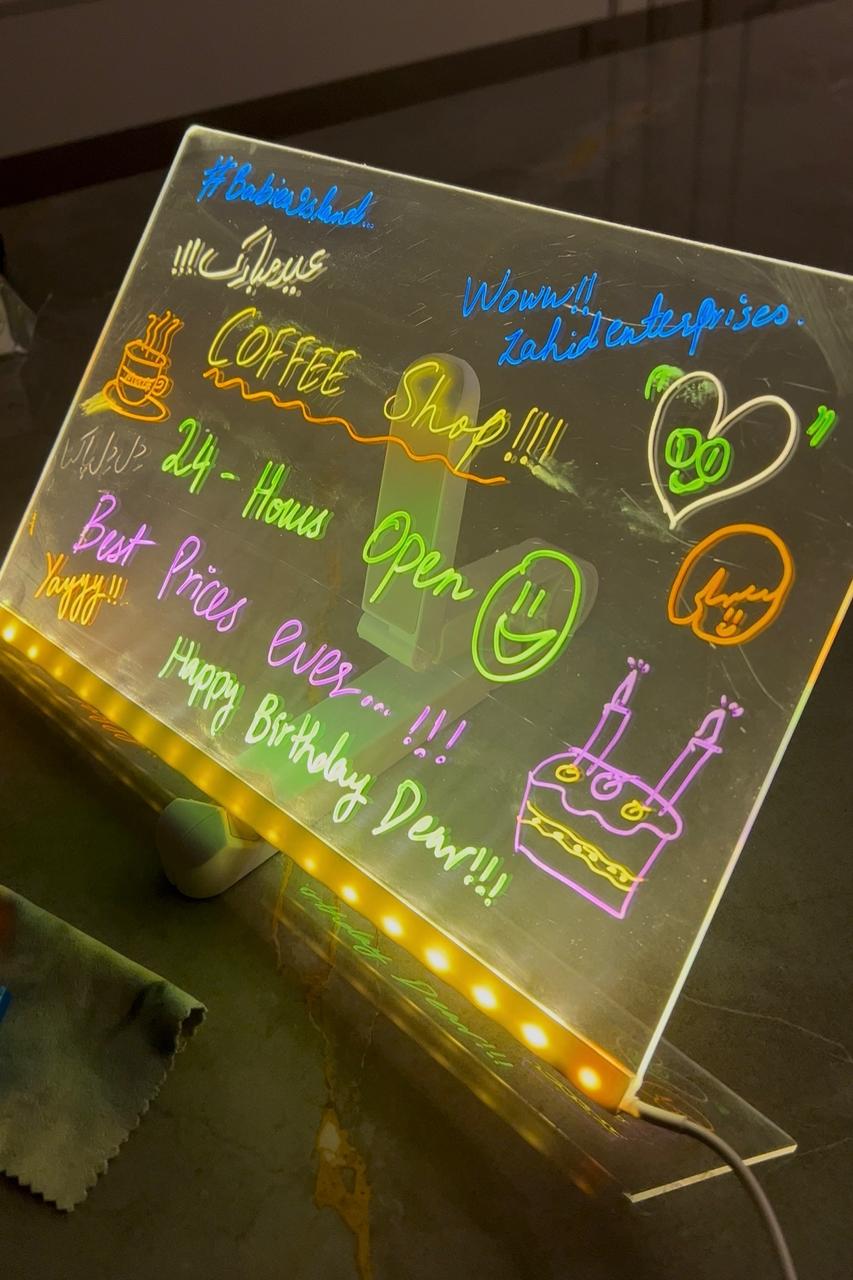 #Babiesisland...
عید مبارک!!!
Woww!!
Zahid enterprises.
COFFEE Shop!!!!
24-Hours Open
Best Prices ever...!!!
Yayyy!!!
Happy Birthday Dear!!!